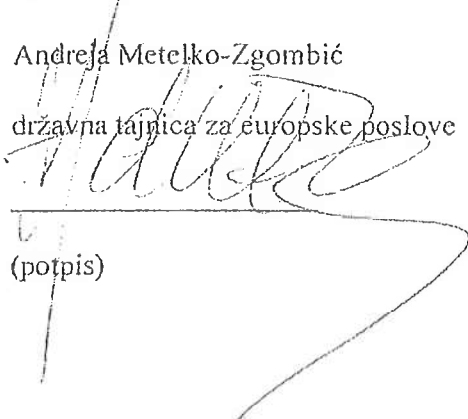 Andreja Metelko-Zgombić
državna tajnica za europske poslove
(potpis)